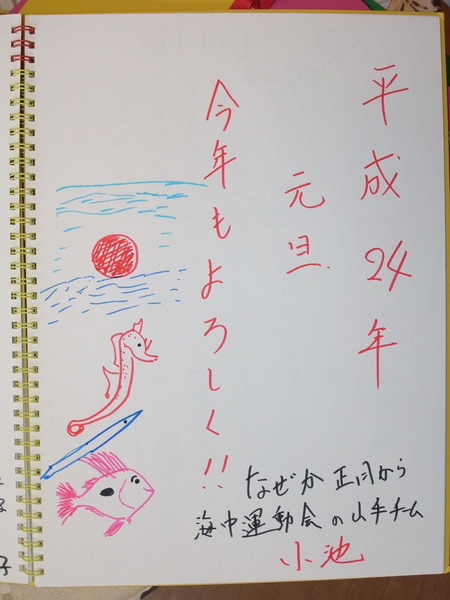 平成24年
元旦
今年もよろしく!!
なぜか正月から
海中運動会の山手チーム
小池